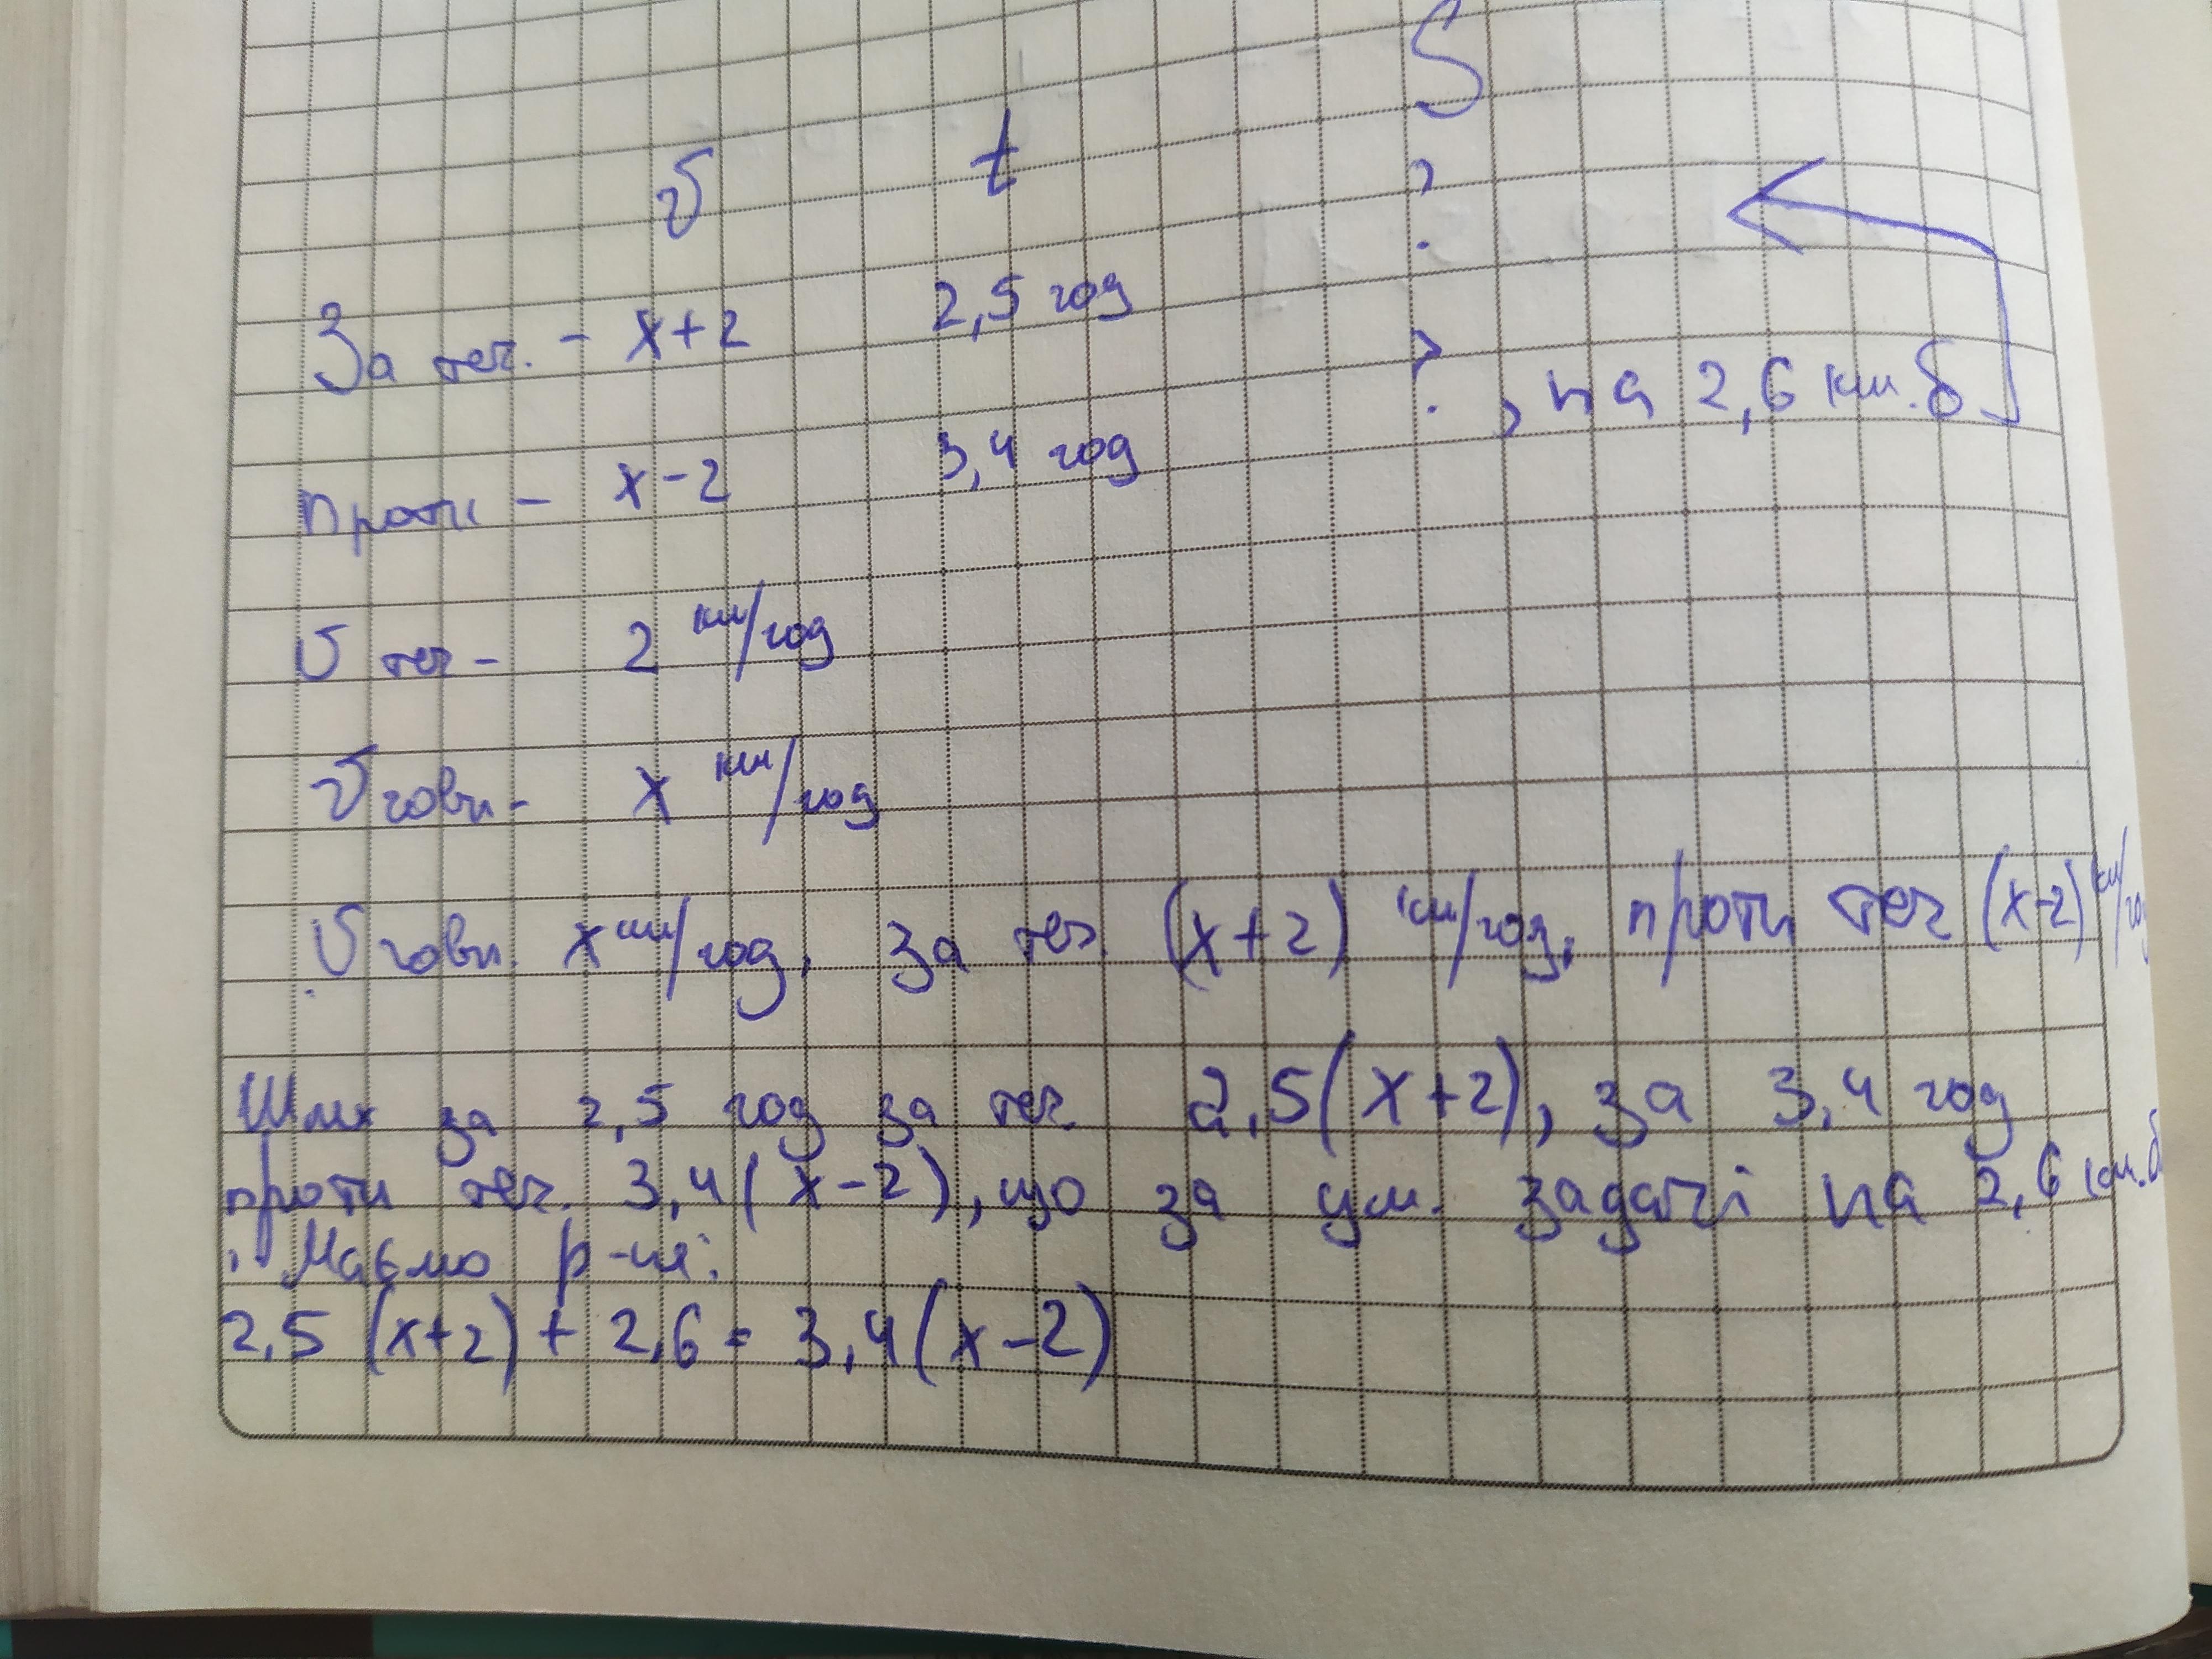 V t S
За теч. - x+2 2,5 год ?
проти - x-2 3,4 год ?, на 2,6 км.б
V теч - 2 км/год
V човн - x км/год
V човн. x км/год, за теч (x+2) км/год, проти теч (x-2) км/год
Шлях за 2,5 год за теч 2,5(x+2), за 3,4 год
проти теч. 3,4(x-2), що за ум. задачі на 2,6 км.б
. Маємо р-ня:
2,5 (x+2) + 2,6 = 3,4(x-2)